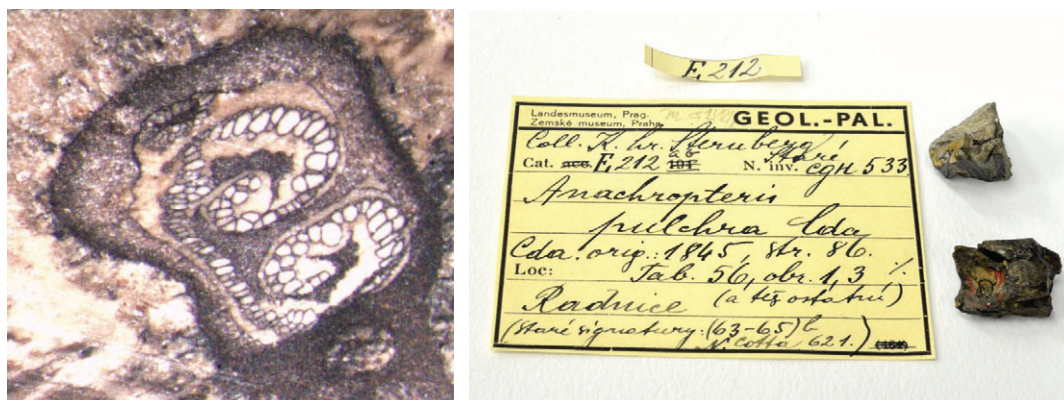 E, 212
Landesmuseum, Prag.
Zemské museum, Praha
GEOL.-PAL.
Coll. K. hr. Sternberg
Staré
Cat. E, 212 a b N. inv. CGH 533
Anachropteris
pulchra Cda
Cda. orig.: 1845, str. 86.
Loc: Tab. 56, obr. 1, 3
Radnice (a též ostatní)
(Staré signatury: (63-65) b
N. Cotta 621.)